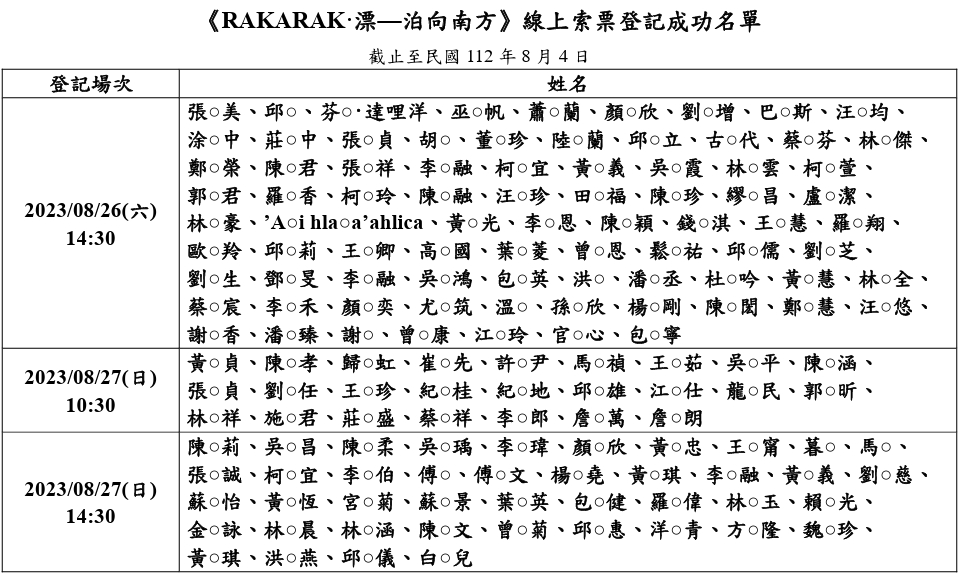 《RAKARAK‧漂—泊向南方》線上索票登記成功名單
截止至民國 112 年 8 月 4 日
登記場次
姓名
2023/08/26(六)
14:30
張○美、邱○、芬○‧達哩洋、巫○帆、蕭○蘭、顏○欣、劉○增、巴○斯、汪○均、
涂○中、莊○中、張○貞、胡○、董○珍、陸○蘭、邱○立、古○代、蔡○芬、林○傑、
鄭○榮、陳○君、張○祥、李○融、柯○宜、黃○義、吳○霞、林○雲、柯○萱、
郭○君、羅○香、柯○玲、陳○融、汪○珍、田○福、陳○珍、繆○昌、盧○潔、
林○豪、’A○i hla○a’ahlica、黃○光、李○恩、陳○穎、錢○淇、王○慧、羅○翔、
歐○羚、邱○莉、王○卿、高○國、葉○菱、曾○恩、鬆○祐、邱○儒、劉○芝、
劉○生、鄧○旻、李○融、吳○鴻、包○英、洪○、潘○丞、杜○吟、黃○慧、林○全、
蔡○宸、李○禾、顏○奕、尤○筑、溫○、孫○欣、楊○剛、陳○閎、鄭○慧、汪○悠、
謝○香、潘○臻、謝○、曾○康、江○玲、官○心、包○寧
2023/08/27(日)
10:30
黃○貞、陳○孝、歸○虹、崔○先、許○尹、馬○禎、王○茹、吳○平、陳○涵、
張○貞、劉○任、王○珍、紀○桂、紀○地、邱○雄、江○仕、龍○民、郭○昕、
林○祥、施○君、莊○盛、蔡○祥、李○郎、詹○萬、詹○朗
2023/08/27(日)
14:30
陳○莉、吳○昌、陳○柔、吳○瑀、李○瑋、顏○欣、黃○忠、王○甯、暮○、馬○、
張○誠、柯○宜、李○伯、傅○、傅○文、楊○堯、黃○琪、李○融、黃○義、劉○慈、
蘇○怡、黃○恆、宮○菊、蘇○景、葉○英、包○健、羅○偉、林○玉、賴○光、
金○詠、林○晨、林○涵、陳○文、曾○菊、邱○惠、洋○青、方○隆、魏○珍、
黃○琪、洪○燕、邱○儀、白○兒